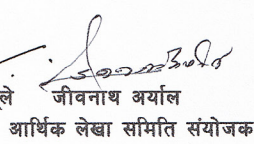 ले जीवनाथ अर्याल
आर्थिक लेखा समिति संयोजक